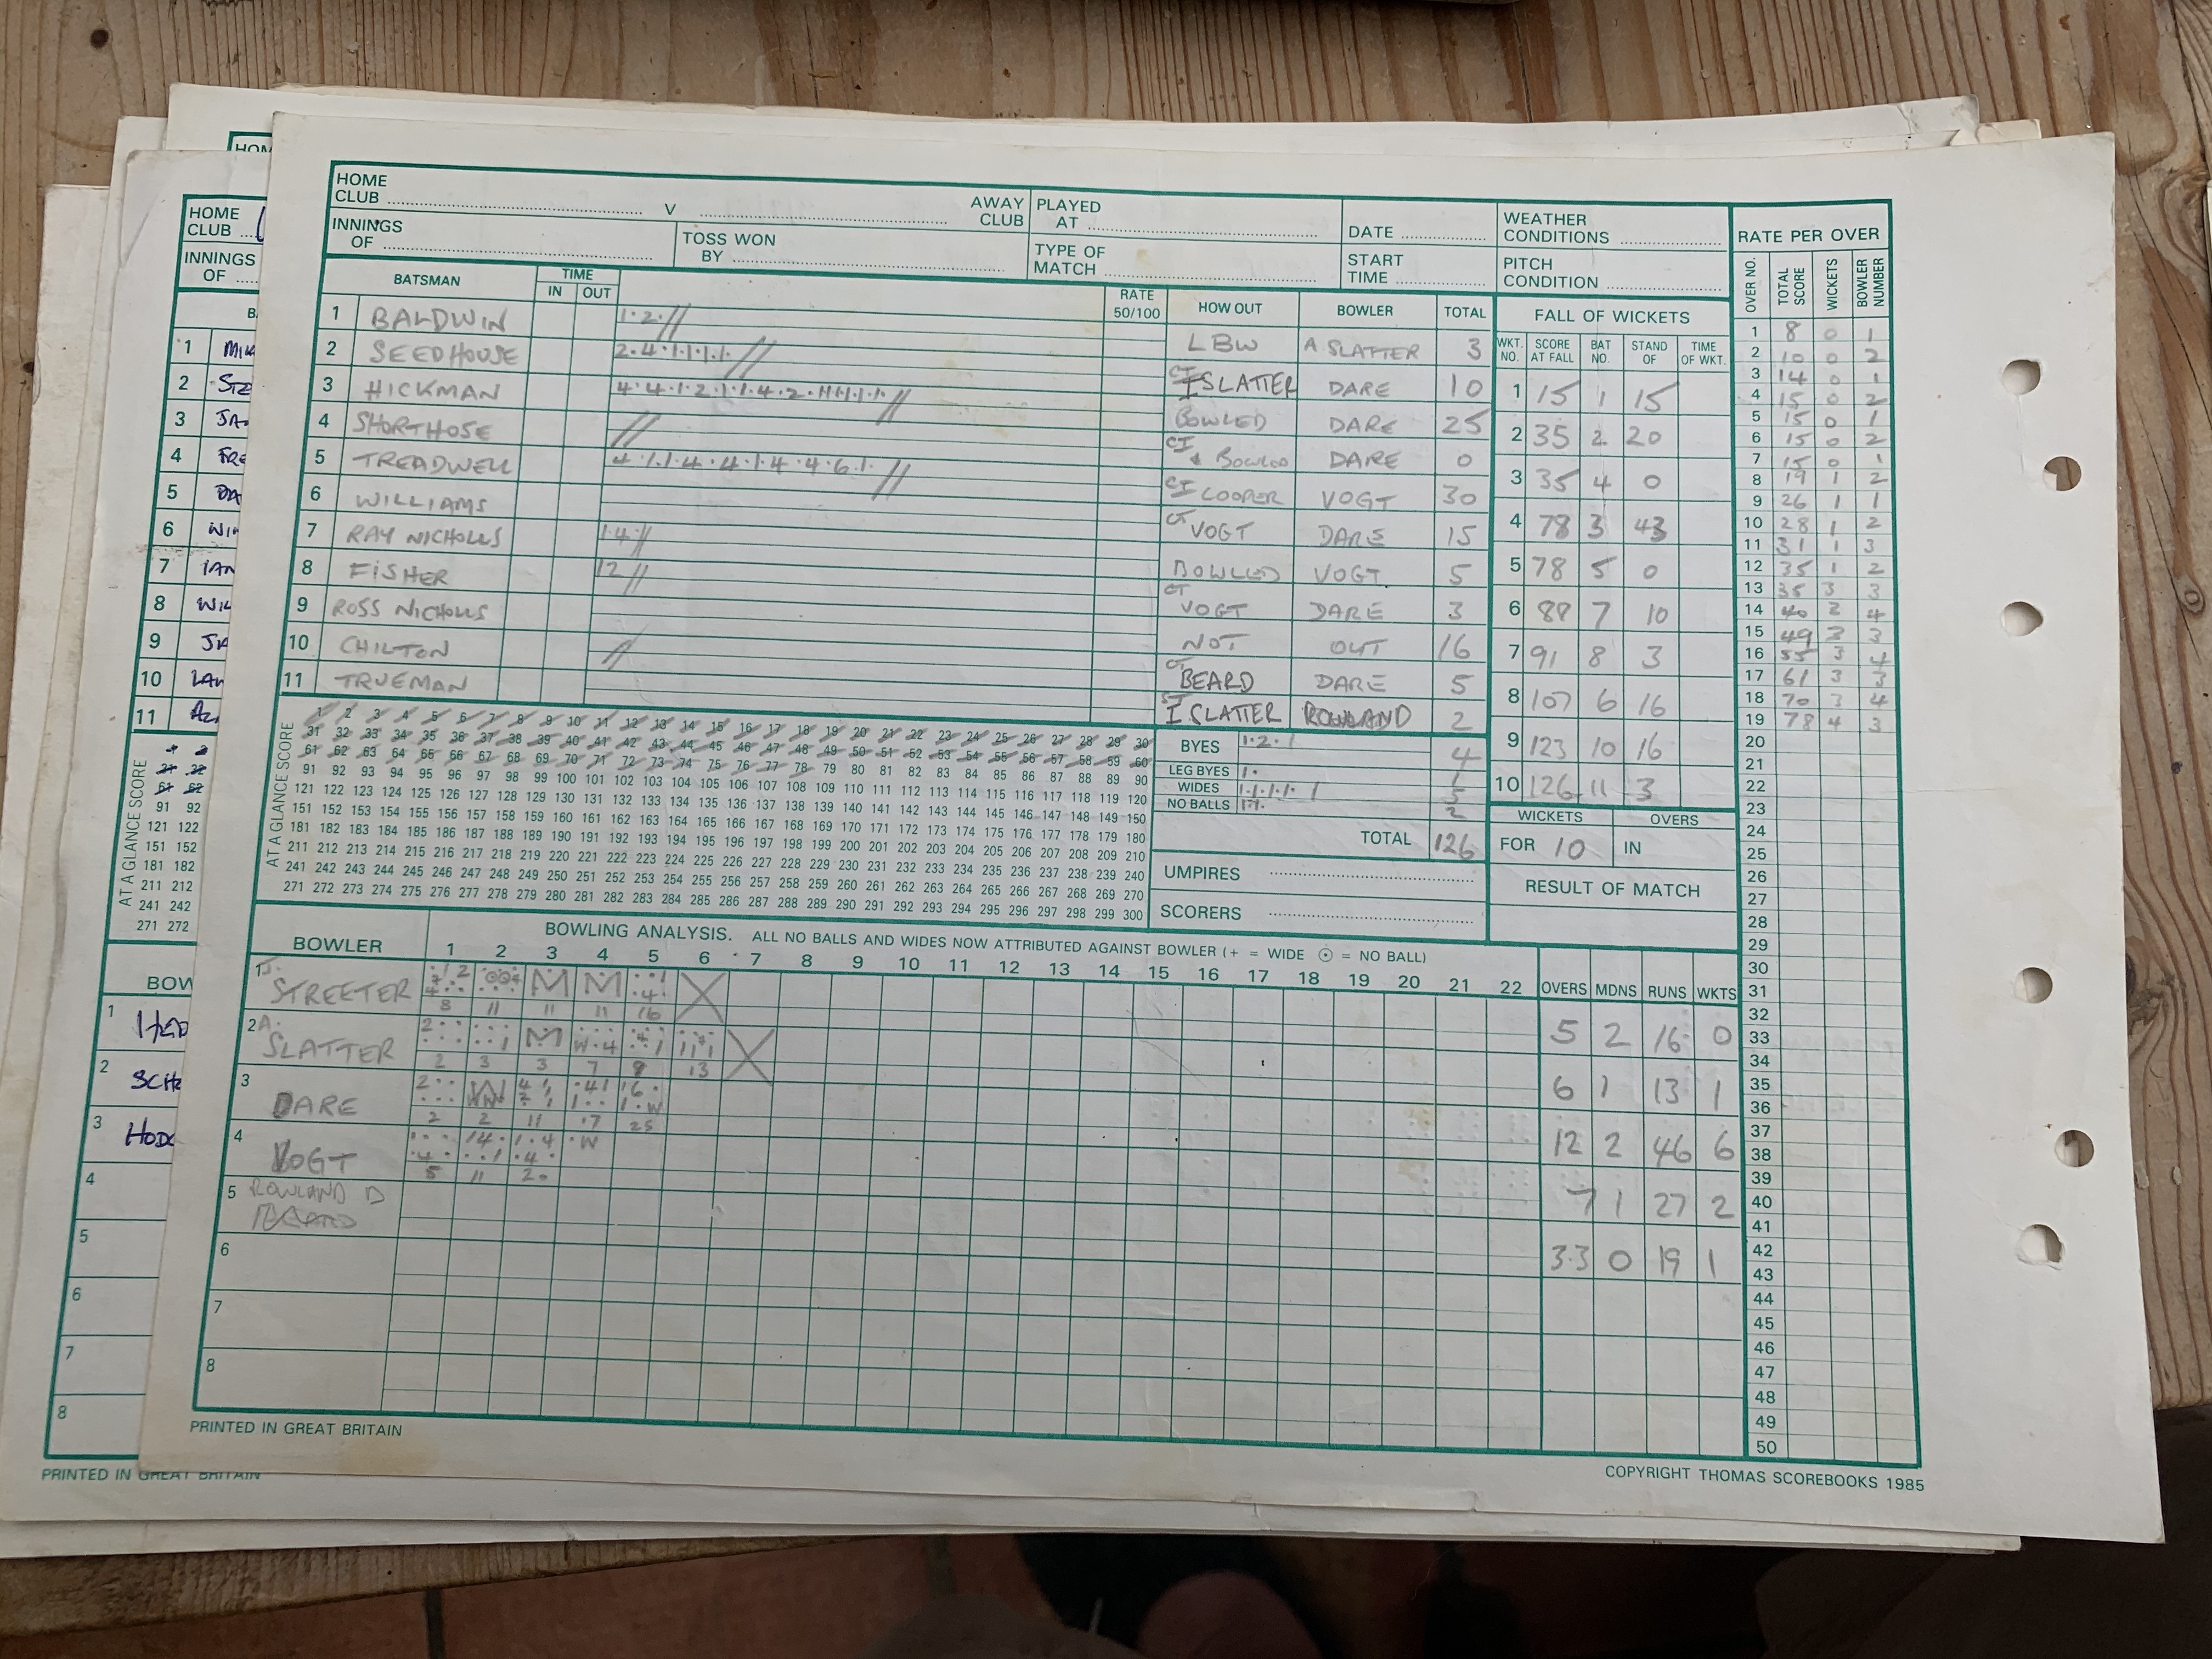 HOME CLUB V AWAY CLUB
PLAYED AT
DATE
WEATHER CONDITIONS
RATE PER OVER
INNINGS OF
TOSS WON BY
TYPE OF MATCH
START TIME
PITCH CONDITION
OVER NO. TOTAL SCORE WICKETS BOWLER NUMBER
BATSMAN TIME IN OUT RATE 50/100 HOW OUT BOWLER TOTAL
1 BALDWIN 1.2. LBW A SLATTER 3
2 SEEDHOUSE 2.4.1.1.1.1. CT I SLATTER DARE 10
3 HICKMAN BOWLED DARE 25
4 SHORTHOSE CT & BOWLED DARE 0
5 TREADWELL 4.1.1.4.4.1.4.4.6.1. CT COOPER VOGT 30
6 WILLIAMS CT VOGT DARE 15
7 RAY NICHOLLS 1.4 BOWLED VOGT 5
8 FISHER 12 CT VOGT DARE 3
9 ROSS NICHOLLS NOT OUT 16
10 CHILTON CT BEARD DARE 5
11 TRUEMAN ST I SLATTER ROWLAND 2
FALL OF WICKETS
WKT. NO. SCORE AT FALL BAT NO. STAND OF TIME OF WKT.
1 15 1 15
2 35 2 20
3 35 4 0
4 78 3 43
5 78 5 0
6 88 7 10
7 91 8 3
8 107 6 16
9 123 10 16
10 126 11 3
WICKETS OVERS
FOR 10 IN
RESULT OF MATCH
AT A GLANCE SCORE
1 2 3 4 5 6 7 8 9 10 11 12 13 14 15 16 17 18 19 20 21 22 23 24 25 26 27 28 29 30
31 32 33 34 35 36 37 38 39 40 41 42 43 44 45 46 47 48 49 50 51 52 53 54 55 56 57 58 59 60
61 62 63 64 65 66 67 68 69 70 71 72 73 74 75 76 77 78 79 80 81 82 83 84 85 86 87 88 89 90
91 92 93 94 95 96 97 98 99 100 101 102 103 104 105 106 107 108 109 110 111 112 113 114 115 116 117 118 119 120
121 122 123 124 125 126 127 128 129 130 131 132 133 134 135 136 137 138 139 140 141 142 143 144 145 146 147 148 149 150
151 152 153 154 155 156 157 158 159 160 161 162 163 164 165 166 167 168 169 170 171 172 173 174 175 176 177 178 179 180
181 182 183 184 185 186 187 188 189 190 191 192 193 194 195 196 197 198 199 200 201 202 203 204 205 206 207 208 209 210
211 212 213 214 215 216 217 218 219 220 221 222 223 224 225 226 227 228 229 230 231 232 233 234 235 236 237 238 239 240
241 242 243 244 245 246 247 248 249 250 251 252 253 254 255 256 257 258 259 260 261 262 263 264 265 266 267 268 269 270
271 272 273 274 275 276 277 278 279 280 281 282 283 284 285 286 287 288 289 290 291 292 293 294 295 296 297 298 299 300
BYES 1.2.1 4
LEG BYES 1. 1
WIDES 1.1.1.1. 1 5
NO BALLS 1.1. 2
TOTAL 126
UMPIRES
SCORERS
BOWLER
BOWLING ANALYSIS. ALL NO BALLS AND WIDES NOW ATTRIBUTED AGAINST BOWLER (+ = WIDE ⊙ = NO BALL)
1 2 3 4 5 6 7 8 9 10 11 12 13 14 15 16 17 18 19 20 21 22 OVERS MDNS RUNS WKTS
1 J. STREETER 8 11 M 11 M 11 16 5 2 16 0
2 A. SLATTER 2 3 M 3 7 8 13 6 1 13 1
3 DARE 2 2 11 17 25 12 2 46 6
4 VOGT 5 11 20 7 1 27 2
5 ROWLAND D 3.3 0 19 1
6
7
8
1 8 0 1
2 10 0 2
3 14 0 1
4 15 0 2
5 15 0 1
6 15 0 2
7 15 0 1
8 19 1 2
9 26 1 1
10 28 1 2
11 31 1 3
12 35 1 2
13 35 3 3
14 40 3 4
15 49 3 3
16 55 3 4
17 61 3 3
18 70 3 4
19 78 4 3
20
21
22
23
24
25
26
27
28
29
30
31
32
33
34
35
36
37
38
39
40
41
42
43
44
45
46
47
48
49
50
PRINTED IN GREAT BRITAIN
COPYRIGHT THOMAS SCOREBOOKS 1985
HOM
HOME CLUB
INNINGS OF
1
2
3
4
5
6
7
8
9
10
11
AT A GLANCE SCORE
91 92
121 122
151 152
181 182
211 212
241 242
271 272
BOW
1
2
3
4
5
6
7
8
PRINTED IN GREAT BRITAIN